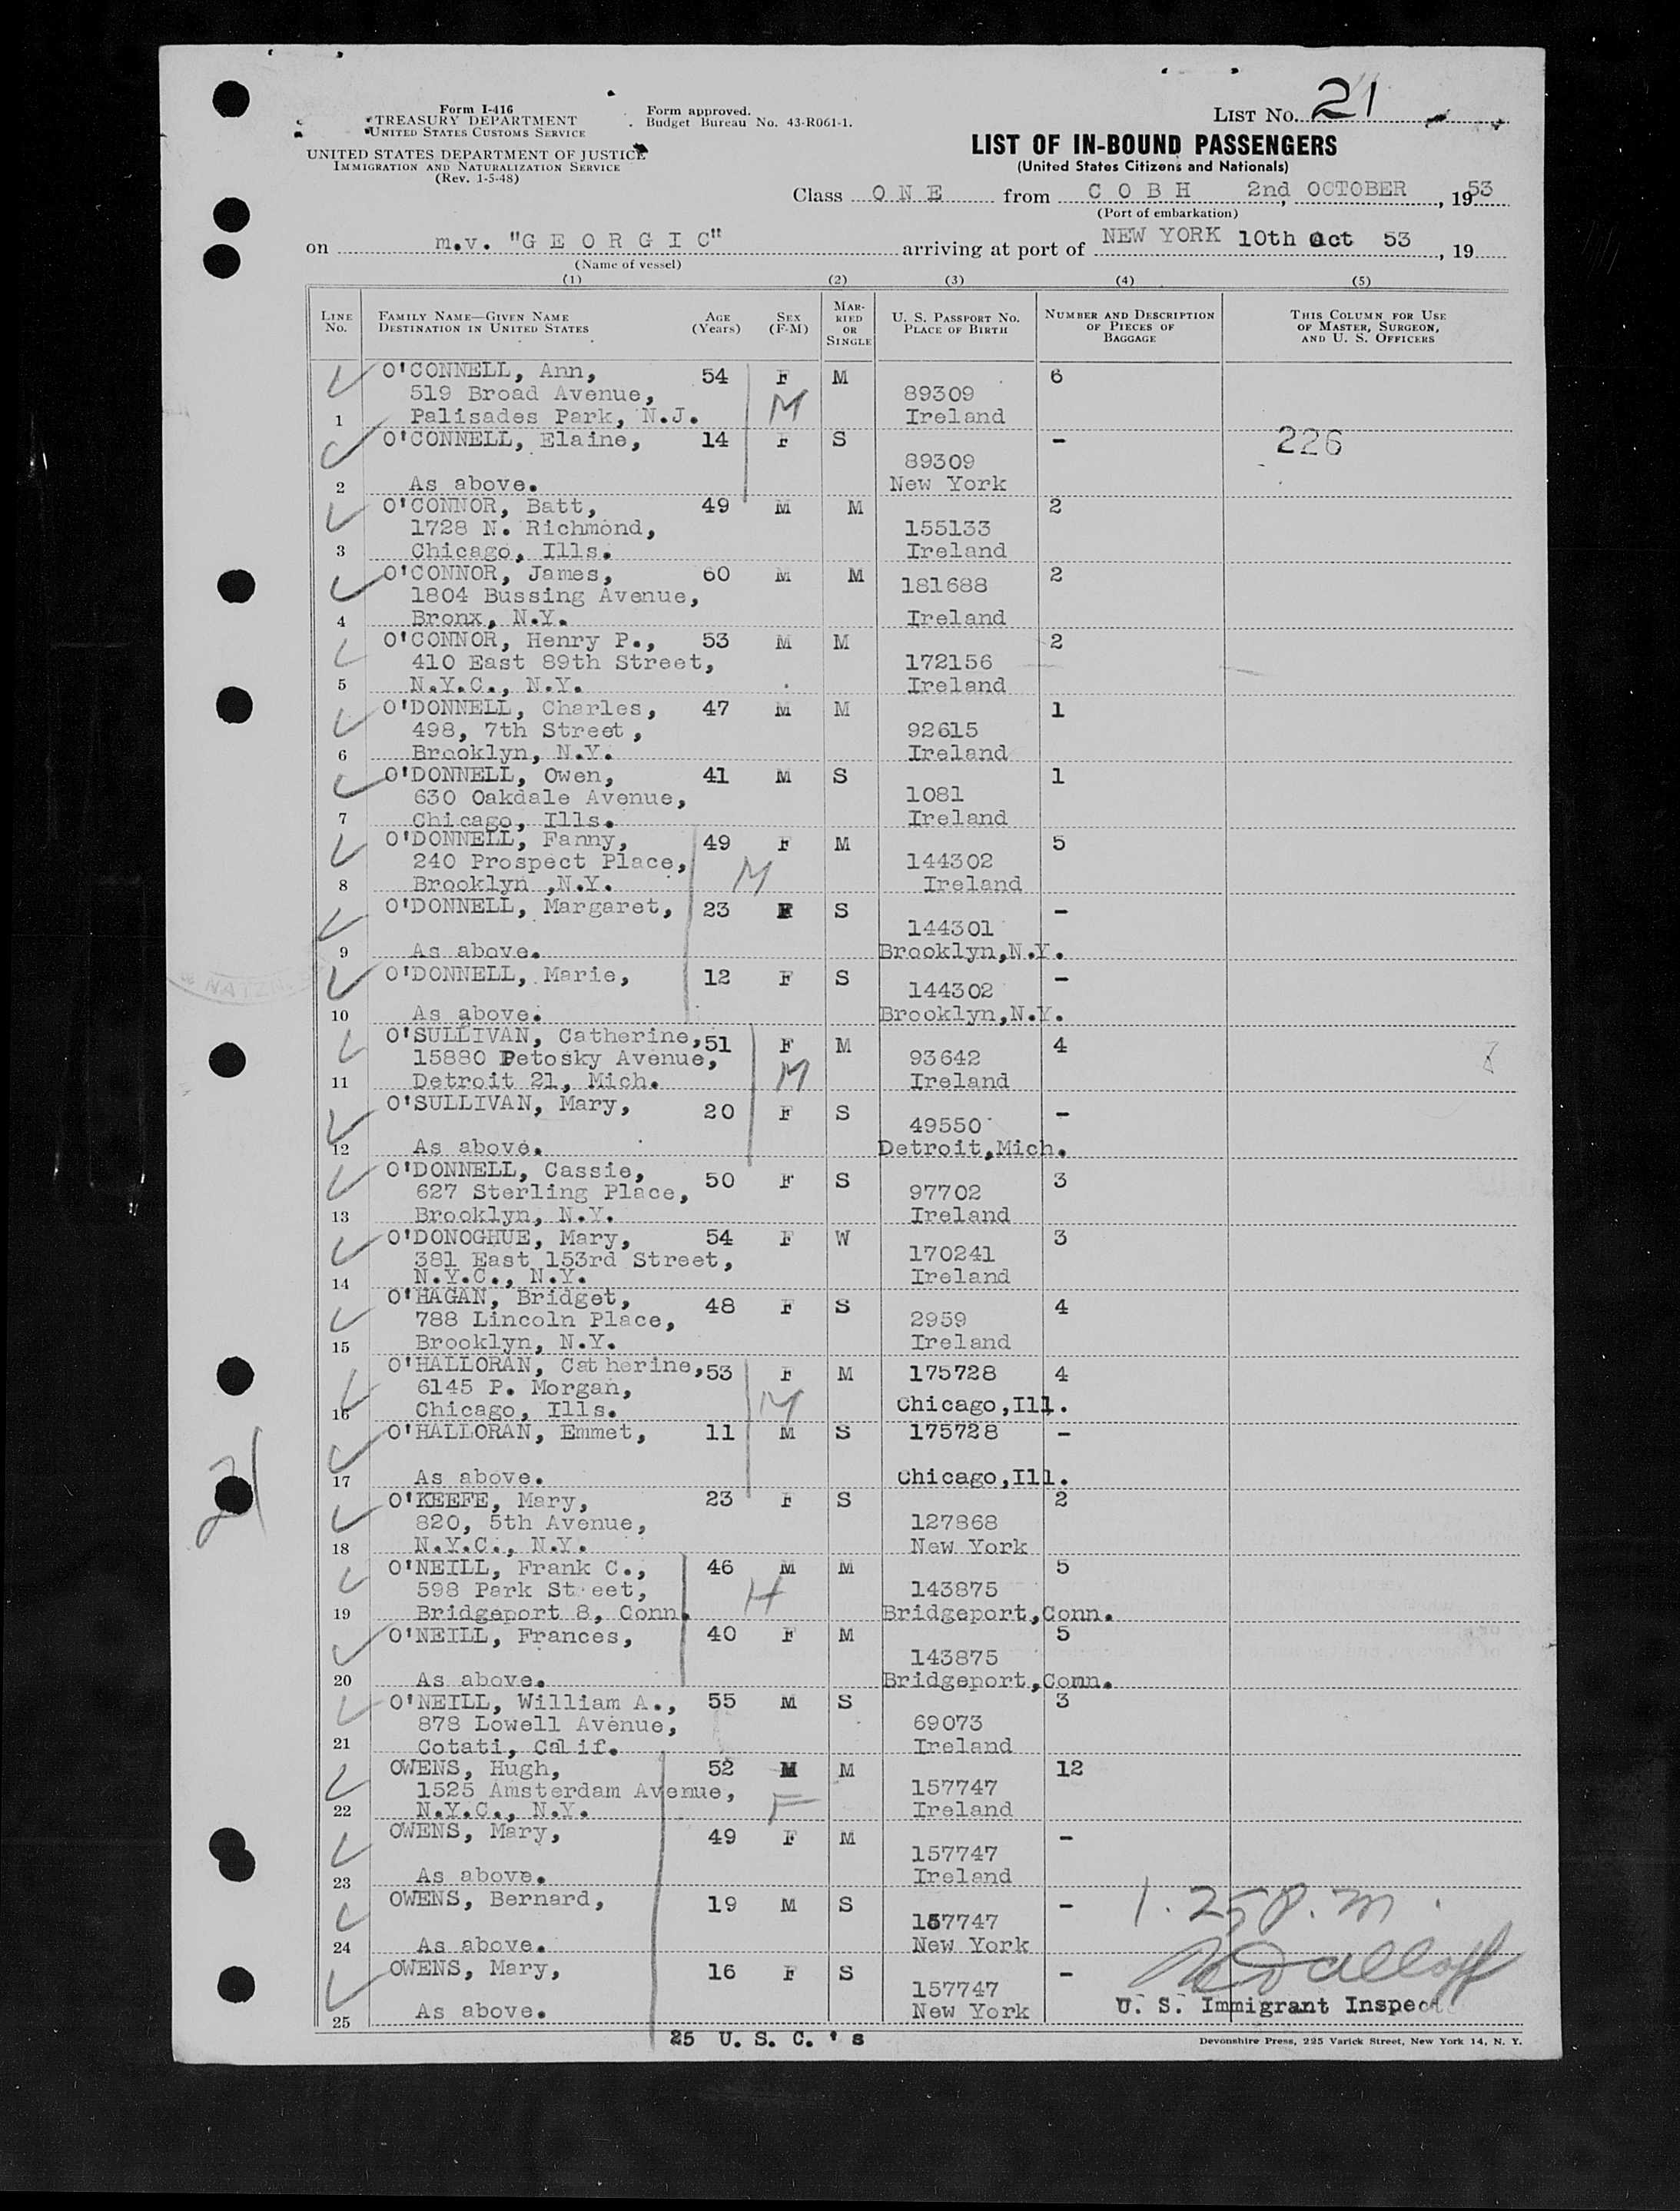 Form I-416
TREASURY DEPARTMENT
UNITED STATES CUSTOMS SERVICE
UNITED STATES DEPARTMENT OF JUSTICE
IMMIGRATION AND NATURALIZATION SERVICE
(Rev. 1-5-48)
Form approved.
Budget Bureau No. 43-R061-1.
LIST No. 21
LIST OF IN-BOUND PASSENGERS
(United States Citizens and Nationals)
Class ONE from COBH 2nd OCTOBER, 1953
(Port of embarkation)
on m.v. "GEORGIC" arriving at port of NEW YORK 10th Oct 53, 19
(Name of vessel)
(1) (2) (3) (4) (5)
LINE No. FAMILY NAME—GIVEN NAME DESTINATION IN UNITED STATES AGE (Years) SEX (F-M) MARRIED OR SINGLE U. S. PASSPORT NO. PLACE OF BIRTH NUMBER AND DESCRIPTION OF PIECES OF BAGGAGE THIS COLUMN FOR USE OF MASTER, SURGEON, AND U. S. OFFICERS
O'CONNELL, Ann, 54 F M 6
519 Broad Avenue, M 89309
1 Palisades Park, N.J. Ireland
O'CONNELL, Elaine, 14 F S - 226
89309
2 As above. New York
O'CONNOR, Batt, 49 M M 2
1728 N. Richmond, 155133
3 Chicago, Ills. Ireland
O'CONNOR, James, 60 M M 2
1804 Bussing Avenue, 181688
4 Bronx, N.Y. Ireland
O'CONNOR, Henry P., 53 M M 2
410 East 89th Street, 172156
5 N.Y.C., N.Y. Ireland
O'DONNELL, Charles, 47 M M 1
498, 7th Street, 92615
6 Brooklyn, N.Y. Ireland
O'DONNELL, Owen, 41 M S 1
630 Oakdale Avenue, 1081
7 Chicago, Ills. Ireland
O'DONNELL, Fanny, 49 F M 5
240 Prospect Place, M 144302
8 Brooklyn ,N.Y. Ireland
O'DONNELL, Margaret, 23 F S -
144301
9 As above. Brooklyn,N.Y.
O'DONNELL, Marie, 12 F S -
144302
10 As above. Brooklyn,N.Y.
O'SULLIVAN, Catherine, 51 F M 4
15880 Petosky Avenue, M 93642
11 Detroit 21, Mich. Ireland
O'SULLIVAN, Mary, 20 F S -
49550
12 As above. Detroit,Mich.
O'DONNELL, Cassie, 50 F S 3
627 Sterling Place, 97702
13 Brooklyn, N.Y. Ireland
O'DONOGHUE, Mary, 54 F W 3
381 East 153rd Street, 170241
14 N.Y.C., N.Y. Ireland
O'HAGAN, Bridget, 48 F S 4
788 Lincoln Place, 2959
15 Brooklyn, N.Y. Ireland
O'HALLORAN, Catherine, 53 F M 175728 4
6145 P. Morgan, M
16 Chicago, Ills. Chicago,Ill.
O'HALLORAN, Emmet, 11 M S 175728 -
17 As above. Chicago,Ill.
O'KEEFE, Mary, 23 F S 2
820, 5th Avenue, 127868
18 N.Y.C., N.Y. New York
O'NEILL, Frank C., 46 M M 5
598 Park St eet, H 143875
19 Bridgeport 8, Conn. Bridgeport,Conn.
O'NEILL, Frances, 40 F M 5
143875
20 As above. Bridgeport,Conn.
O'NEILL, William A., 55 M S 3
878 Lowell Avenue, 69073
21 Cotati, Calif. Ireland
OWENS, Hugh, 52 M M 12
1525 Amsterdam Avenue, F 157747
22 N.Y.C., N.Y. Ireland
OWENS, Mary, 49 F M -
157747
23 As above. Ireland
OWENS, Bernard, 19 M S - 1.25 P.m.
157747
24 As above. New York
OWENS, Mary, 16 F S -
157747
25 As above. New York U. S. Immigrant Inspect
25 U. S. C. ' s
Devonshire Press, 225 Varick Street, New York 14, N. Y.
21